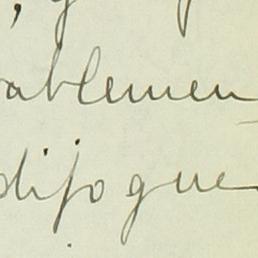 ablemen
dijogue